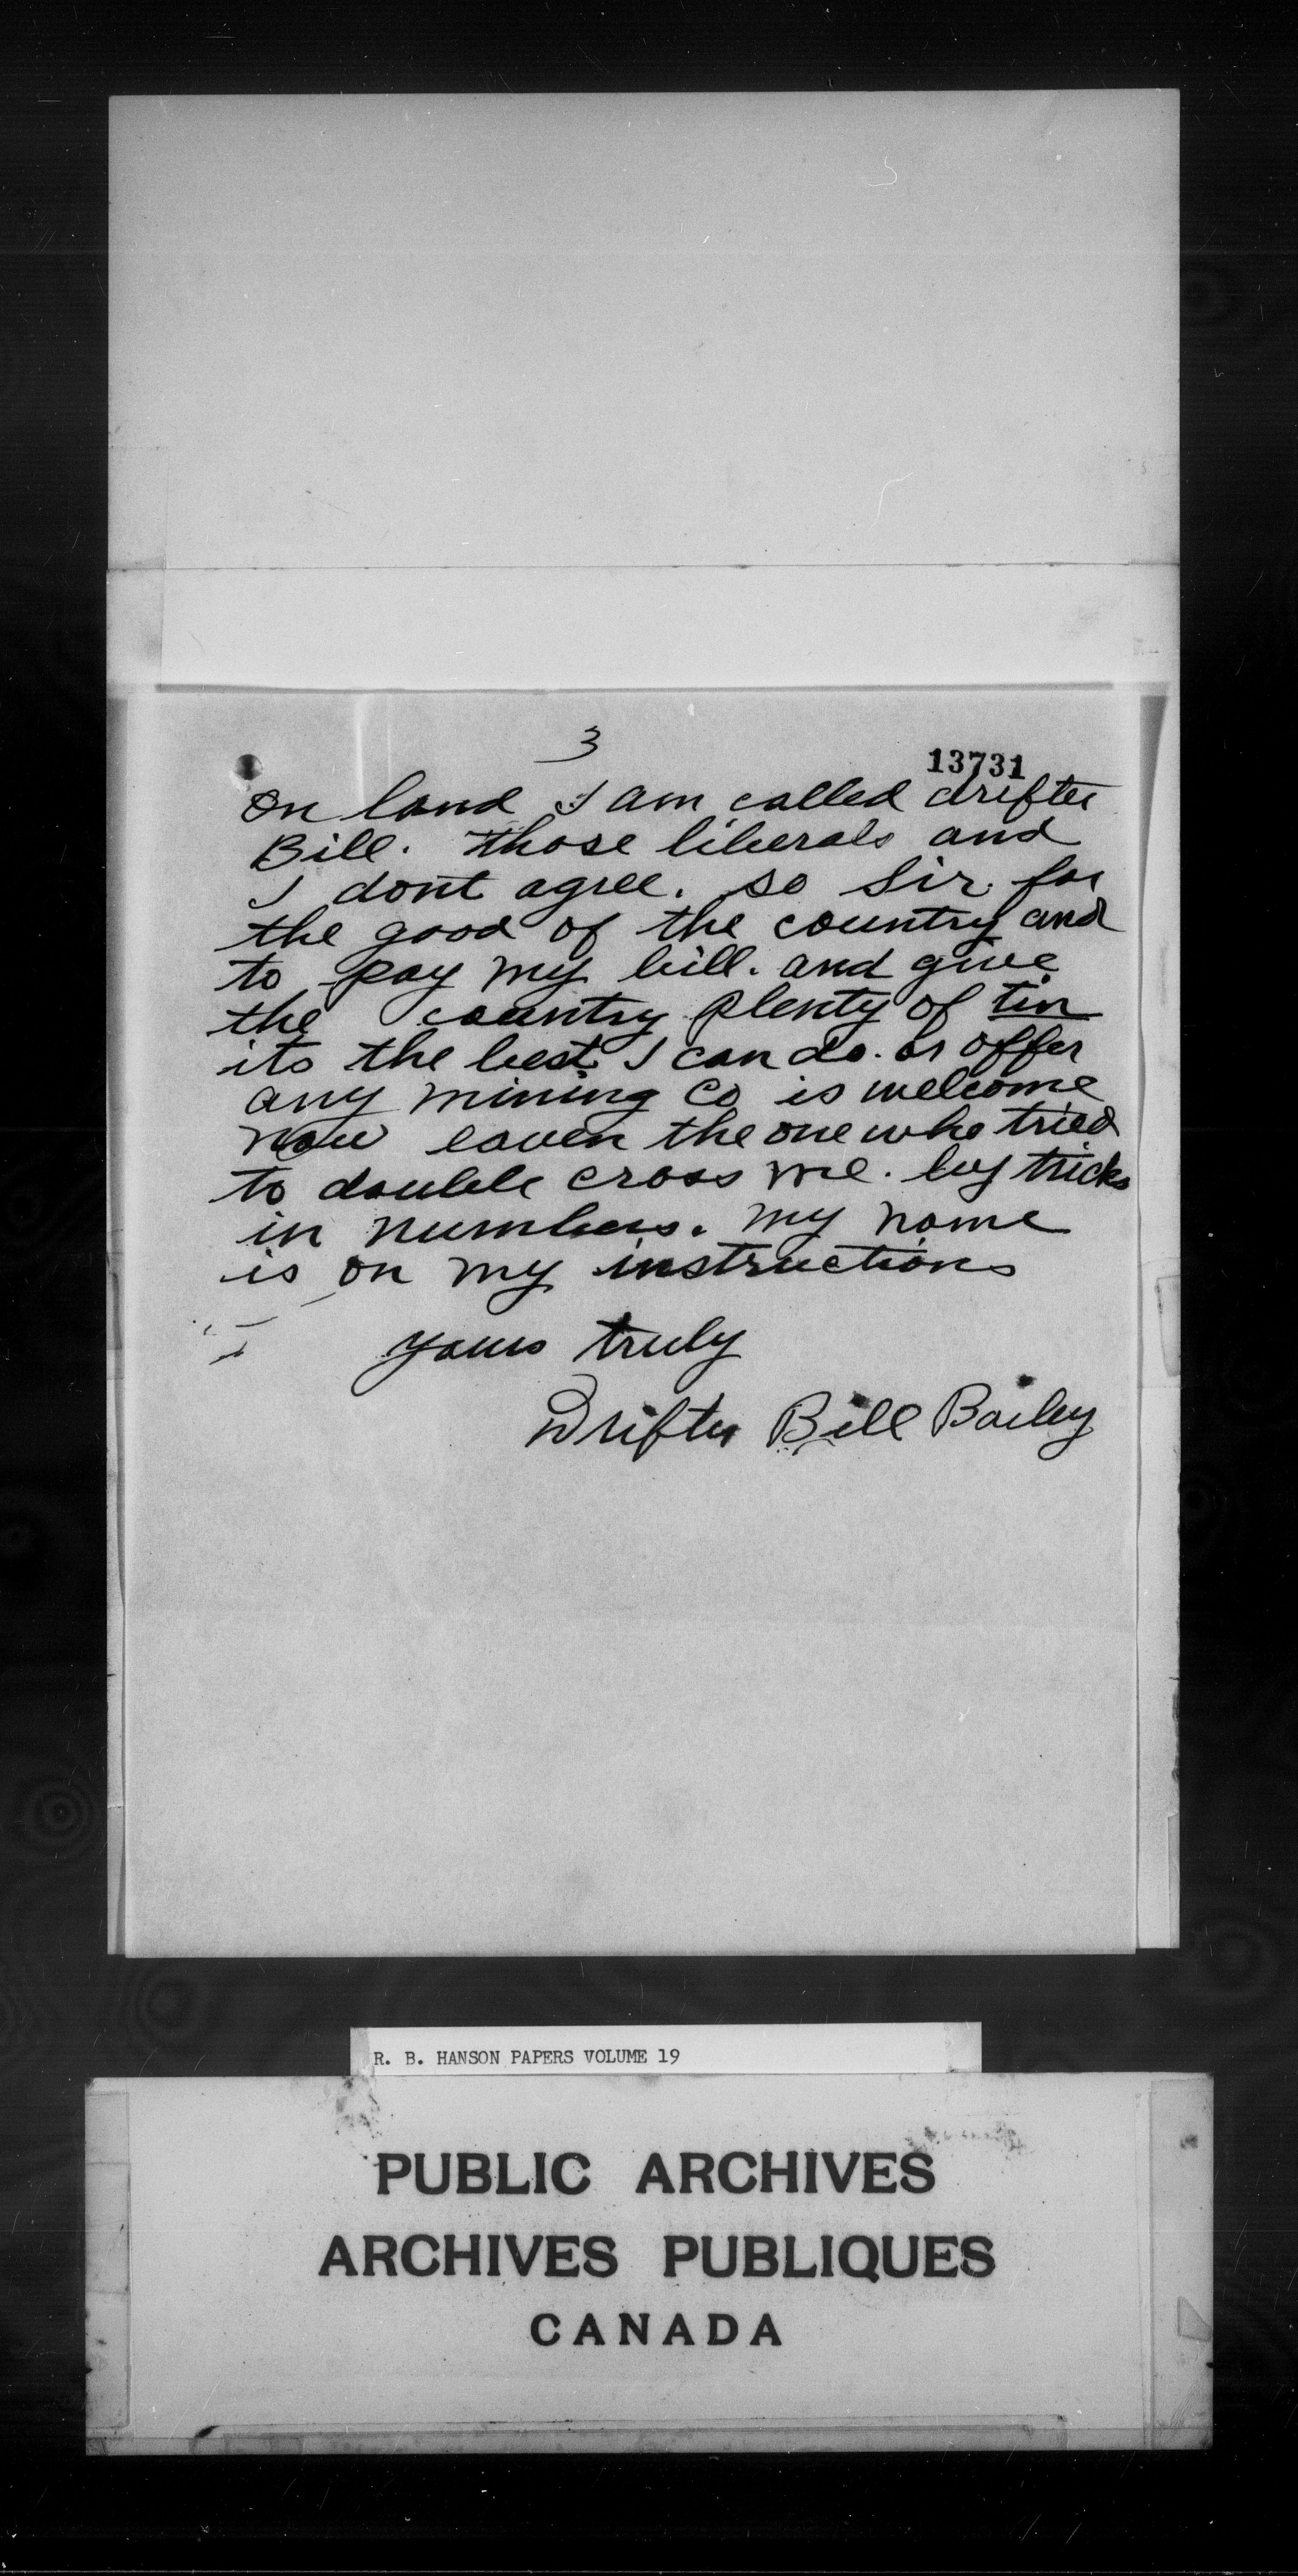 3
13731
on land I am called drifter
Bill. those liberals and
I dont agree. so Sir for
the good of the country and
to pay my bill. and give
the country plenty of tin
its the best I can do. or offer
any mining Co is welcome
now eaven the one who tried
to double cross me. by tricks
in numbers. my name
is on my instructions
yours truly
Drifter Bill Bailey
R. B. HANSON PAPERS VOLUME 19
PUBLIC ARCHIVES
ARCHIVES PUBLIQUES
CANADA